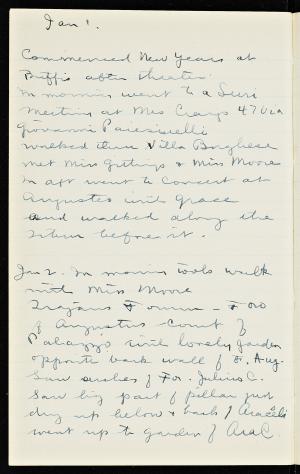 Jan 1.
Commenced New Years at
Biffis after theater.
In morning went to a Sem
meeting at Mrs Craigs 47 Via
Giovanni Paiesiselli
walked thru Villa Borghese
met Miss Gittings & Miss Moore
In aft went to concert at
Augusteo with Grace
and walked along the
before it.
Jan 2. In morning took walk
with Miss Moore
Trajans Forum - Foro
of Augustus Court of
Palazzo with lovely garden
opposite back wall of F. Aug.
Saw arches of For. Julius C.
Saw big part of pillar just
dug up below & back of Aracoeli
went up to garden of Ara C.